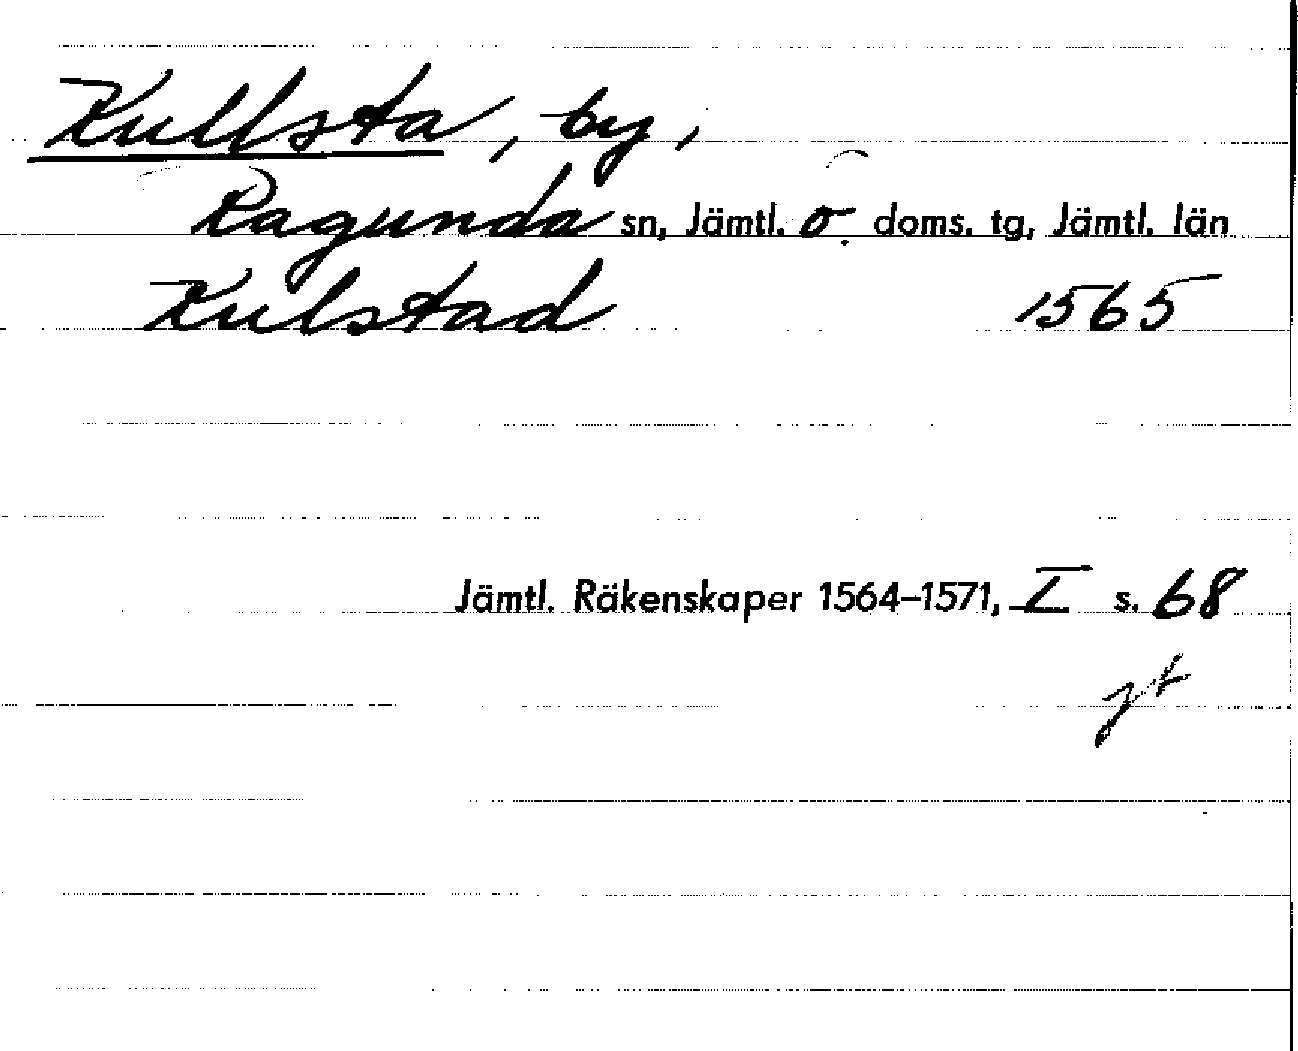 Kullsta, by,
Ragunda sn, Jämtl. ö. doms. tg, Jämtl. län
Kulstad 1565
Jämtl. Räkenskaper 1564–1571, I s. 68